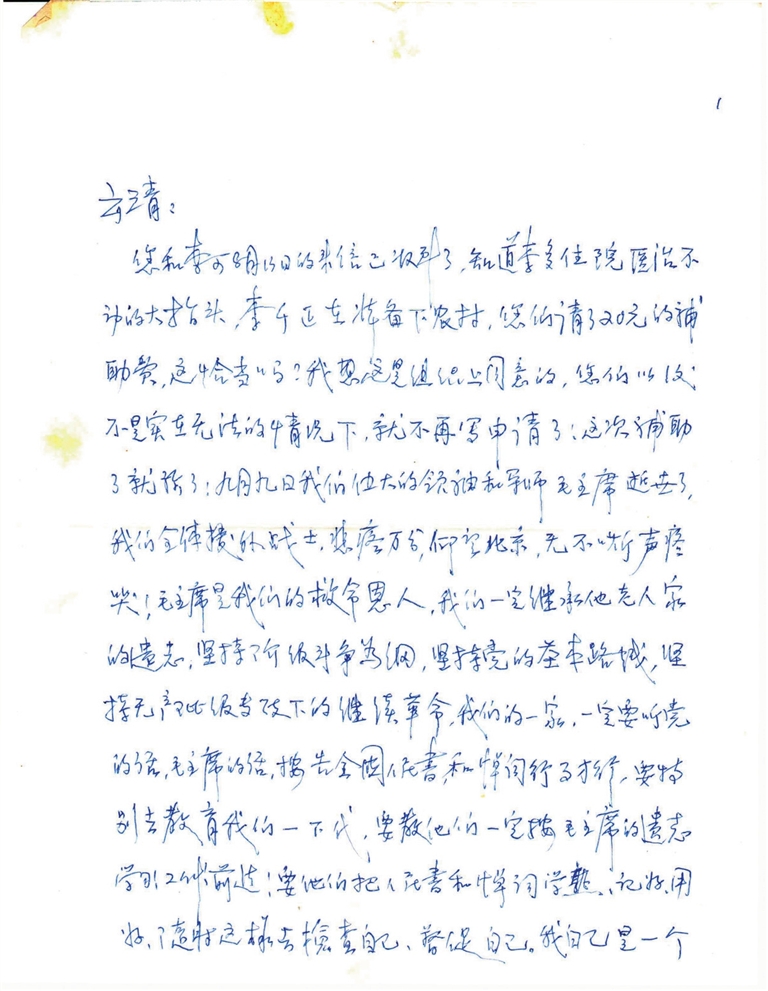 1
青:
您和李可8月15日的来信已收到了,知道李多住院医治不
的大抬头,李个正在准备下农村,您们请了20元的补
助费,这恰当吗?我想这是组织上同意的,您们以后
不是实在无法的情况下,就不再写申请了;这次补助
了就算了;九月九日我们伟大的领袖和导师毛主席逝世了,
我们全体援外战士,悲痛万分,仰望北京,无不嘶声痛
哭!毛主席是我们的救命恩人,我们一定继承他老人家
的遗志,坚持阶级斗争为纲,坚持党的基本路线,坚
持无产阶级专政下的继续革命,我们的一家,一定要听党
的话,毛主席的话,按告全国人民书,和悼词行了才行,要特
别去教育我们一下代,要教他们一定按毛主席的遗志
学习工作前进!要他们把人民书和悼词学熟、记好、用
好,随时这样去检查自己、督促自己。我自己是一个